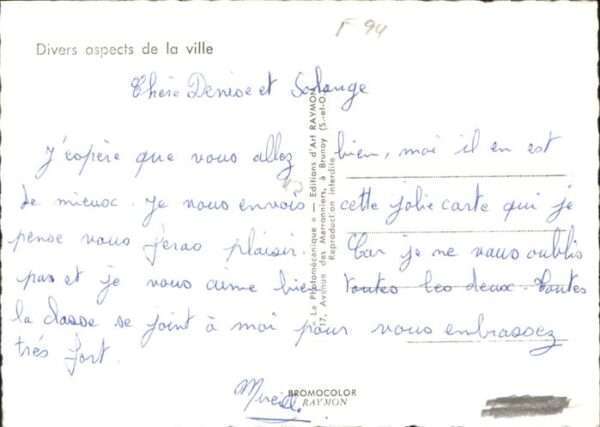 F 94
Divers aspects de la ville
Chère Denise et Solange
J'espère que vous allez bien, moi il en est
de mieux. Je vous envois cette jolie carte qui je
pense vous feras plaisir. Car je ne vous oublis
pas et je vous aime bien toutes les deux. Toutes
la classe se joint à moi pour vous embrassez
très fort.
Mireille
« La Photomécanique » — Editions d'Art RAYMON
17, Avenue des Marronniers, à Brunoy (S.-et-O.)
Reproduction interdite
BROMOCOLOR
RAYMON